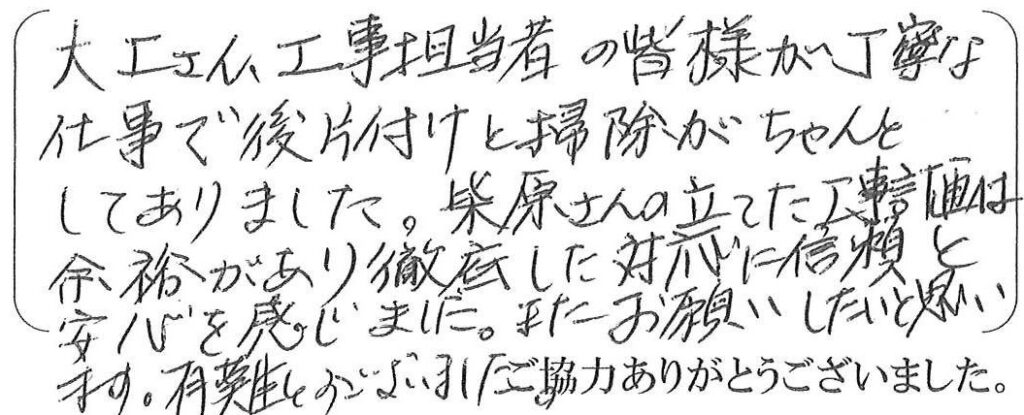 大工さん、工事担当者の皆様が丁寧な
仕事で後片付けと掃除がちゃんと
してありました。柴原さんの立てた工事計画は
余裕があり徹底した対応に信頼と
安心を感じました。またお願いしたいと思い
ます。有難とうございましたご協力ありがとうございました。